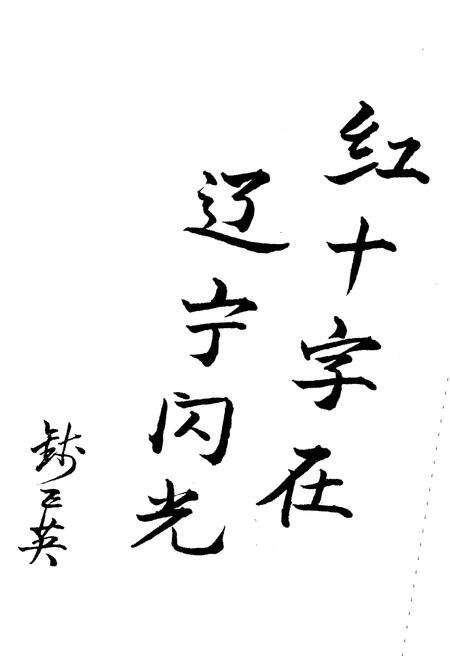 红十字在
辽宁闪光
钱正英